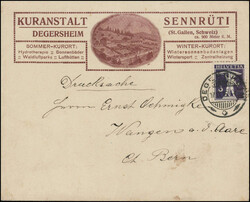 KURANSTALT SENNRÜTI
DEGERSHEIM
(St. Gallen, Schweiz)
ca. 900 Meter ü. M.
SOMMER-KURORT:
WINTER-KURORT:
Wintersport Zentralheizung
HELVETIA
Drucksache
Herrn Ernst Schmigke
Wangen a. d. Aare
Ct. Bern